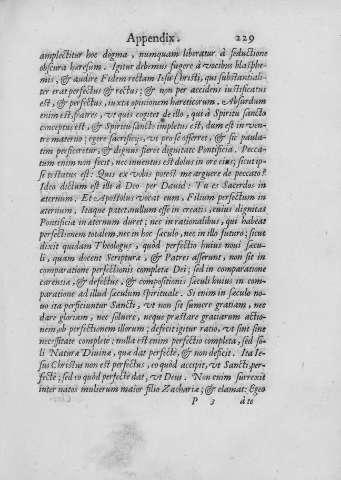 Appendix. 229
amplectitur hoc dogma, numquam liberatur à seductione
obscura hæresum. Igitur debemus fugere à vocibus blasphe-
mis, & audire Fidem rectam Iesu Christi, qui substantiali-
ter erat perfectus & rectus; & non per accidens iustificatus
est, & perfectus, iuxta opinionem hæreticorum. Absurdum
enim est, fratres, vt quis cogitet de illo, qui à Spiritu sancto
conceptus est, & Spiritu sancto impletus est, dum est in ven-
tre matris; egere sacrificio, vt pro se offerret, & sic paula-
tim perficeretur, & dignus fieret dignitate Pontificia. Pecca-
tum enim non fecit, nec inuentus est dolus in ore eius; sicut ip-
se testatus est: Quis ex vobis potest me arguere de peccato?
Ideo dictum est illi à Deo per Dauid: Tu es Sacerdos in
æternum. Et Apostolus vocat eum, Filium perfectum in
æternum. Itaque patet, nullum esse in creatis, cuius dignitas
Pontificia in æternum duret; nec in rationalibus, qui habeat
perfectionem totalem, nec in hoc sæculo, nec in illo futuro; sicut
dixit quidam Theologus, quòd perfectio huius noui sæcu-
li, quam docent Scripturæ, & Patres asserunt, non sit in
comparatione perfectionis completa Dei; sed in comparatione
carentiæ, & defectus, & compositionis sæculi huius in com-
paratione ad illud sæculum spirituale. Si enim in sæculo no-
uo ita perficiuntur Sancti, vt non sit sumere gratiam, nec
dare gloriam, nec soluere, neque præstare gratiarum actio-
nem, ob perfectionem illorum; deficit igitur ratio, vt sint sine
necessitate completè; nulla est enim perfectio completa, sed so-
li Naturæ Diuinæ, quæ dat perfectè, & non deficit. Ita Ie-
sus Christus non est perfectus, eo quòd accepit, vt Sancti, per-
fectè; sed eo quòd perfectè dat, vt Deus. Non enim surrexit
inter natos mulierum maior filio Zachariæ; & clamat: Ego
P 3 à te